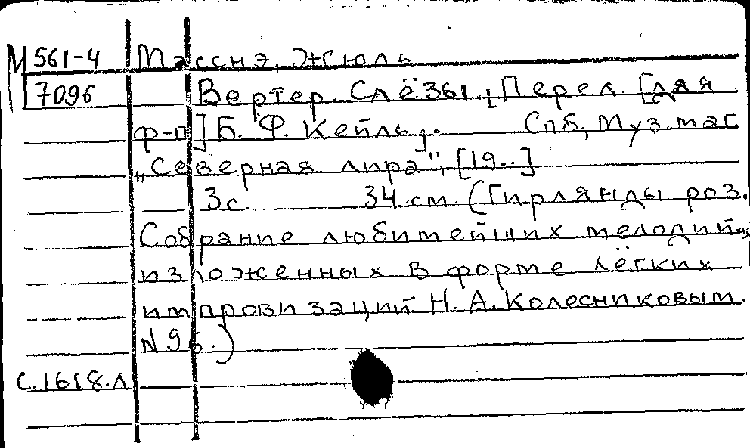 М 561-4 Масснэ, Жюль
7096 Вертер. Слёзы. [Перел. [для
ф-п] Б. Ф. Кейль]. Спб, Муз. маг.
„Северная лира", [19..]
3с. 34 см. (Гирлянды роз.
Собрание любимейших мелодий,
изложенных в форме лёгких
импровизаций Н. А. Колесниковым.
N. 96.)
С.1618.Л